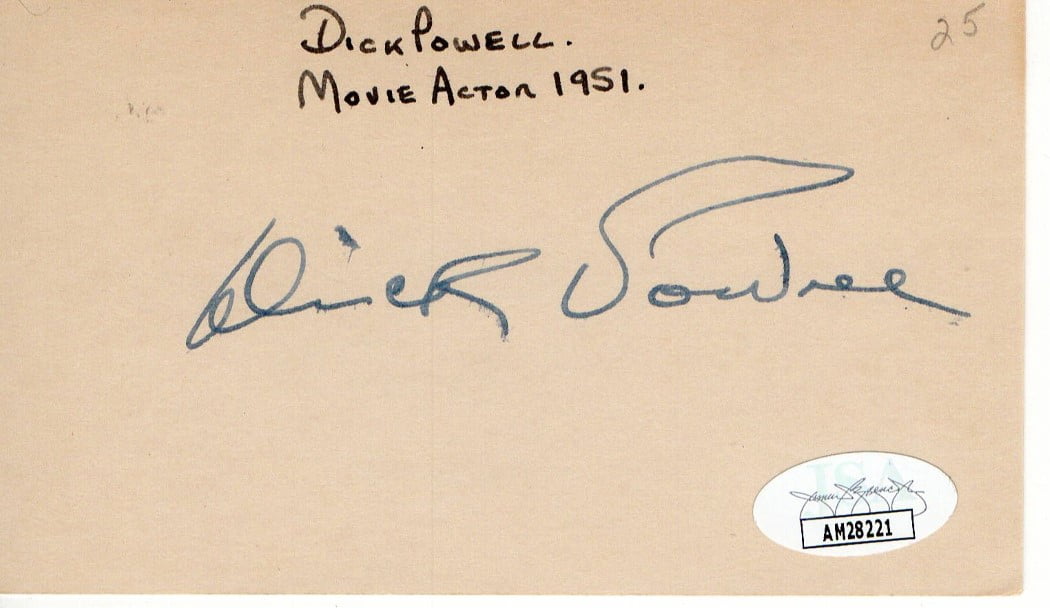 Dick Powell.
Movie Actor 1951.
25
Dick Powell
JSA
James Spence
AM28221